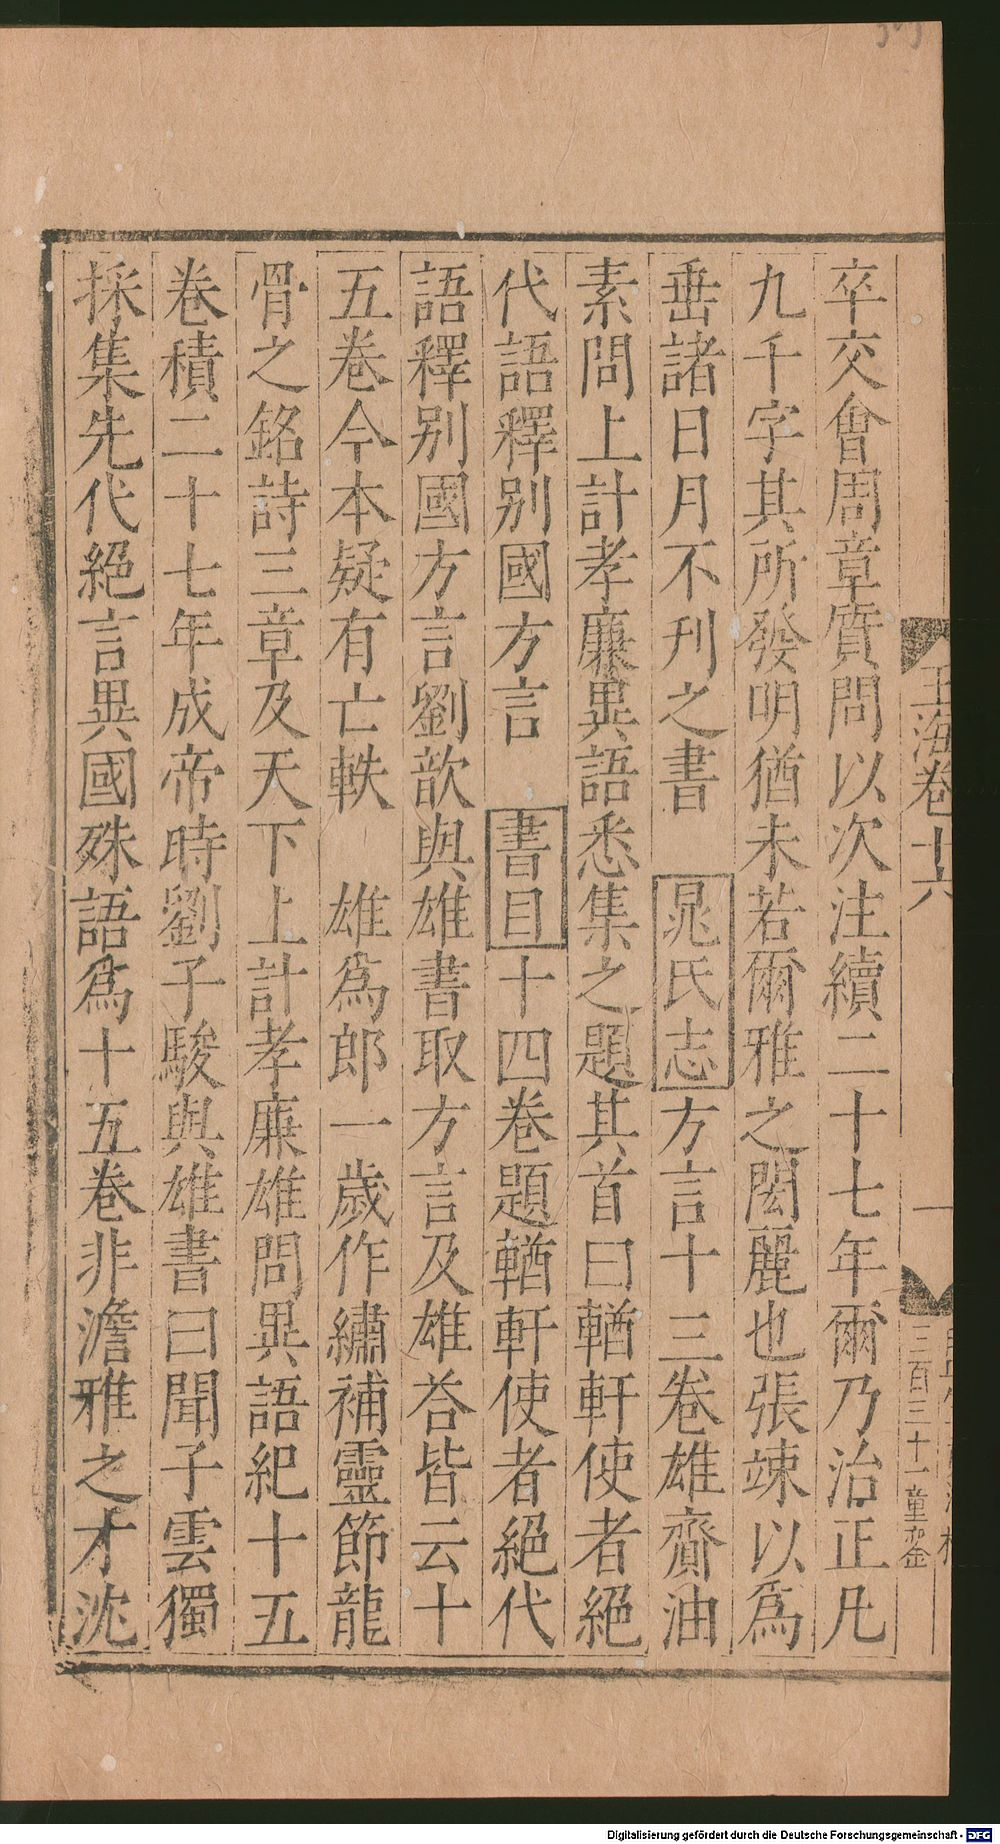 卒交會周章質問以次注續二十七年爾乃治正凡
九千字其所發明猶未若爾雅之閎麗也張竦以爲
垂諸日月不刊之書 晁氏志方言十三卷雄齎油
素問上計孝廉異語悉集之題其首曰輶軒使者絕
代語釋别國方言 書目十四卷題輶軒使者絕代
語釋别國方言劉歆與雄書取方言及雄荅皆云十
五卷今本疑有亡軼 雄爲郎一歲作繡補靈節龍
骨之銘詩三章及天下上計孝廉雄問異語紀十五
卷積二十七年成帝時劉子駿與雄書曰聞子雲獨
採集先代絕言異國殊語爲十五卷非澹雅之才沈
玉海卷十六
一
三百三十一童
Digitalisierung gefördert durch die Deutsche Forschungsgemeinschaft - DFG